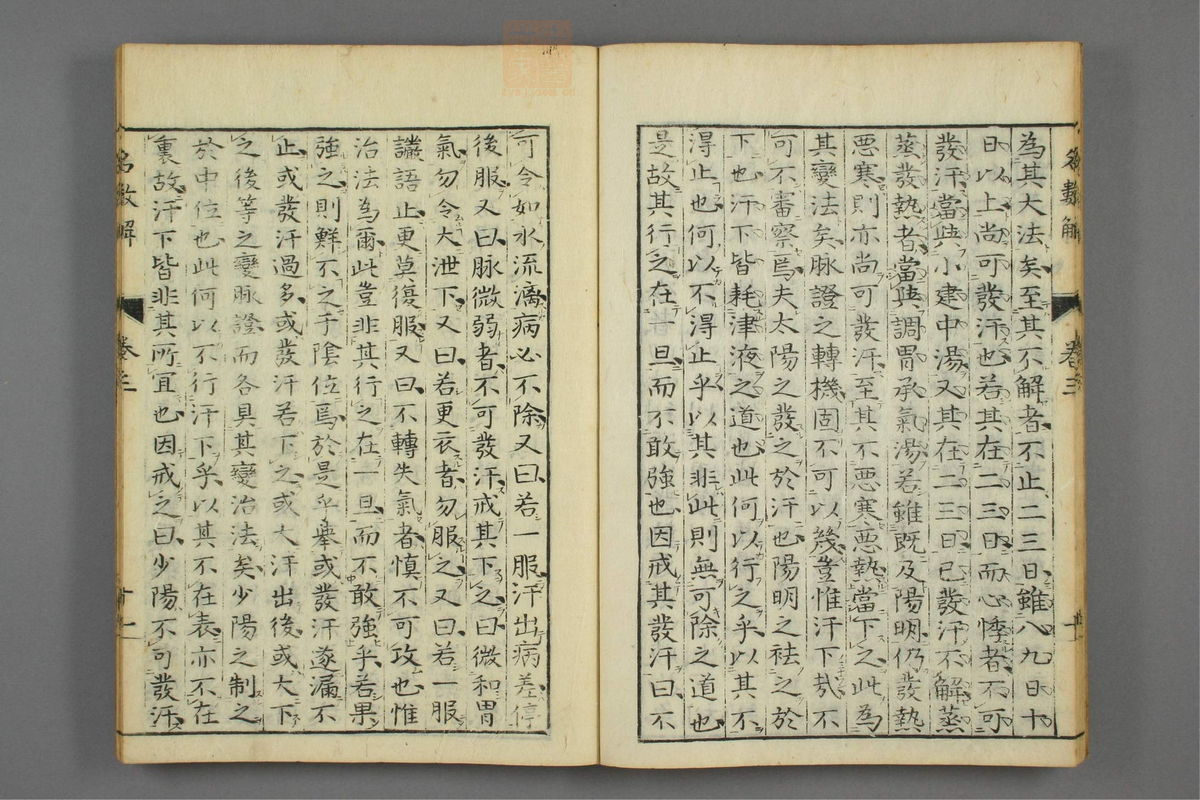 為其大法矣至其不解者不止二三日雖八九日十
日以上尚可發汗也若其在二三日而心悸者不可
發汗當與小建中湯又其在二三日已發汗不解蒸
蒸發熱者當與調胃承氣湯若雖既及陽明仍發熱
惡寒則亦尚可發汗至其不惡寒惡熱當下之此為
其變法矣脉證之轉機固不可以幾豈惟汗下哉不
可不審察焉夫太陽之發之於汗也陽明之祛之於
下也汗下皆耗津液之道也此何以行之乎以其不
得止也何以不得止乎以其非此則無可除之道也
是故其行之在一旦而不敢強也因戒其發汗曰不
名數解 卷三
可令如水流漓病必不除又曰若一服汗出病差停
後服又曰脉微弱者不可發汗戒其下之曰微和胃
氣勿令大泄下又曰若更衣者勿服之又曰若一服
讝語止更莫復服又曰不轉失氣者慎不可攻也惟
治法為爾此豈非其行之在一旦而不敢強乎若果
強之則鮮不之于陰位焉於是乎舉或發汗遂漏不
止或發汗過多或發汗若下之或大汗出後或大下
之後等之變脉證而各具其變治法矣少陽之制之
於中位也此何以不行汗下乎以其不在表亦不在
裏故汗下皆非其所宜也因戒之曰少陽不可發汗
名數解 卷三 十一